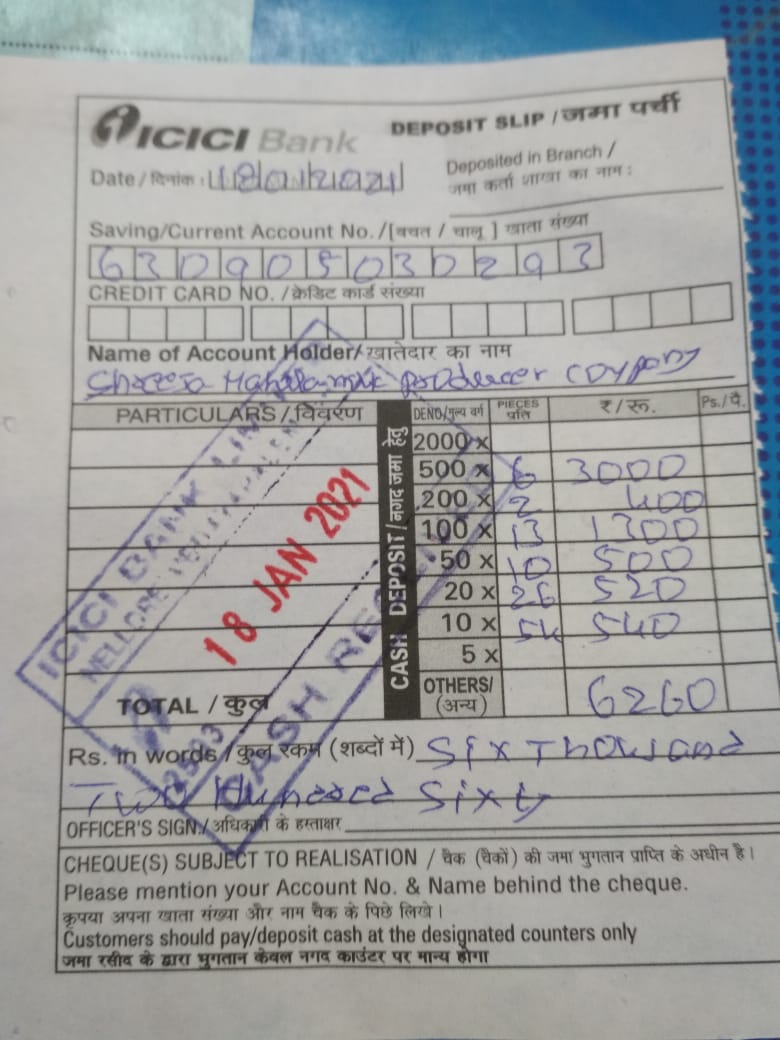 ICICI Bank
DEPOSIT SLIP / जमा पर्ची
Date / दिनांक : 18/01/2021
Deposited in Branch /
जमा कर्ता शाखा का नाम :
Saving/Current Account No. /[बचत / चालू ] खाता संख्या
630905030293
CREDIT CARD NO. /क्रेडिट कार्ड संख्या
Name of Account Holder/खातेदार का नाम
Producer
PARTICULARS / विवरण
CASH DEPOSIT/नगद जमा हेतु
DENO/मूल्य वर्ग PIECES प्रति ₹/रू. Ps./पै.
2000 x
500 x 6 3000
200 x 2 400
100 x 13 1300
50 x 10 500
20 x 26 520
10 x 54 540
5 x
TOTAL / कुल OTHERS/ (अन्य) 6260
ICICI BANK LIMITED
18 JAN 2021
CASH RECEIVED
Rs. in words /कुल रकम (शब्दों में) Six Thousand
Two Hundred Sixty
OFFICER'S SIGN./अधिकारी के हस्ताक्षर
CHEQUE(S) SUBJECT TO REALISATION / चैक (चैकों) की जमा भुगतान प्राप्ति के अधीन है।
Please mention your Account No. & Name behind the cheque.
कृपया अपना खाता संख्या और नाम चैक के पिछे लिखे।
Customers should pay/deposit cash at the designated counters only
जमा रसीद के द्वारा भुगतान केवल नगद काउंटर पर मान्य होगा